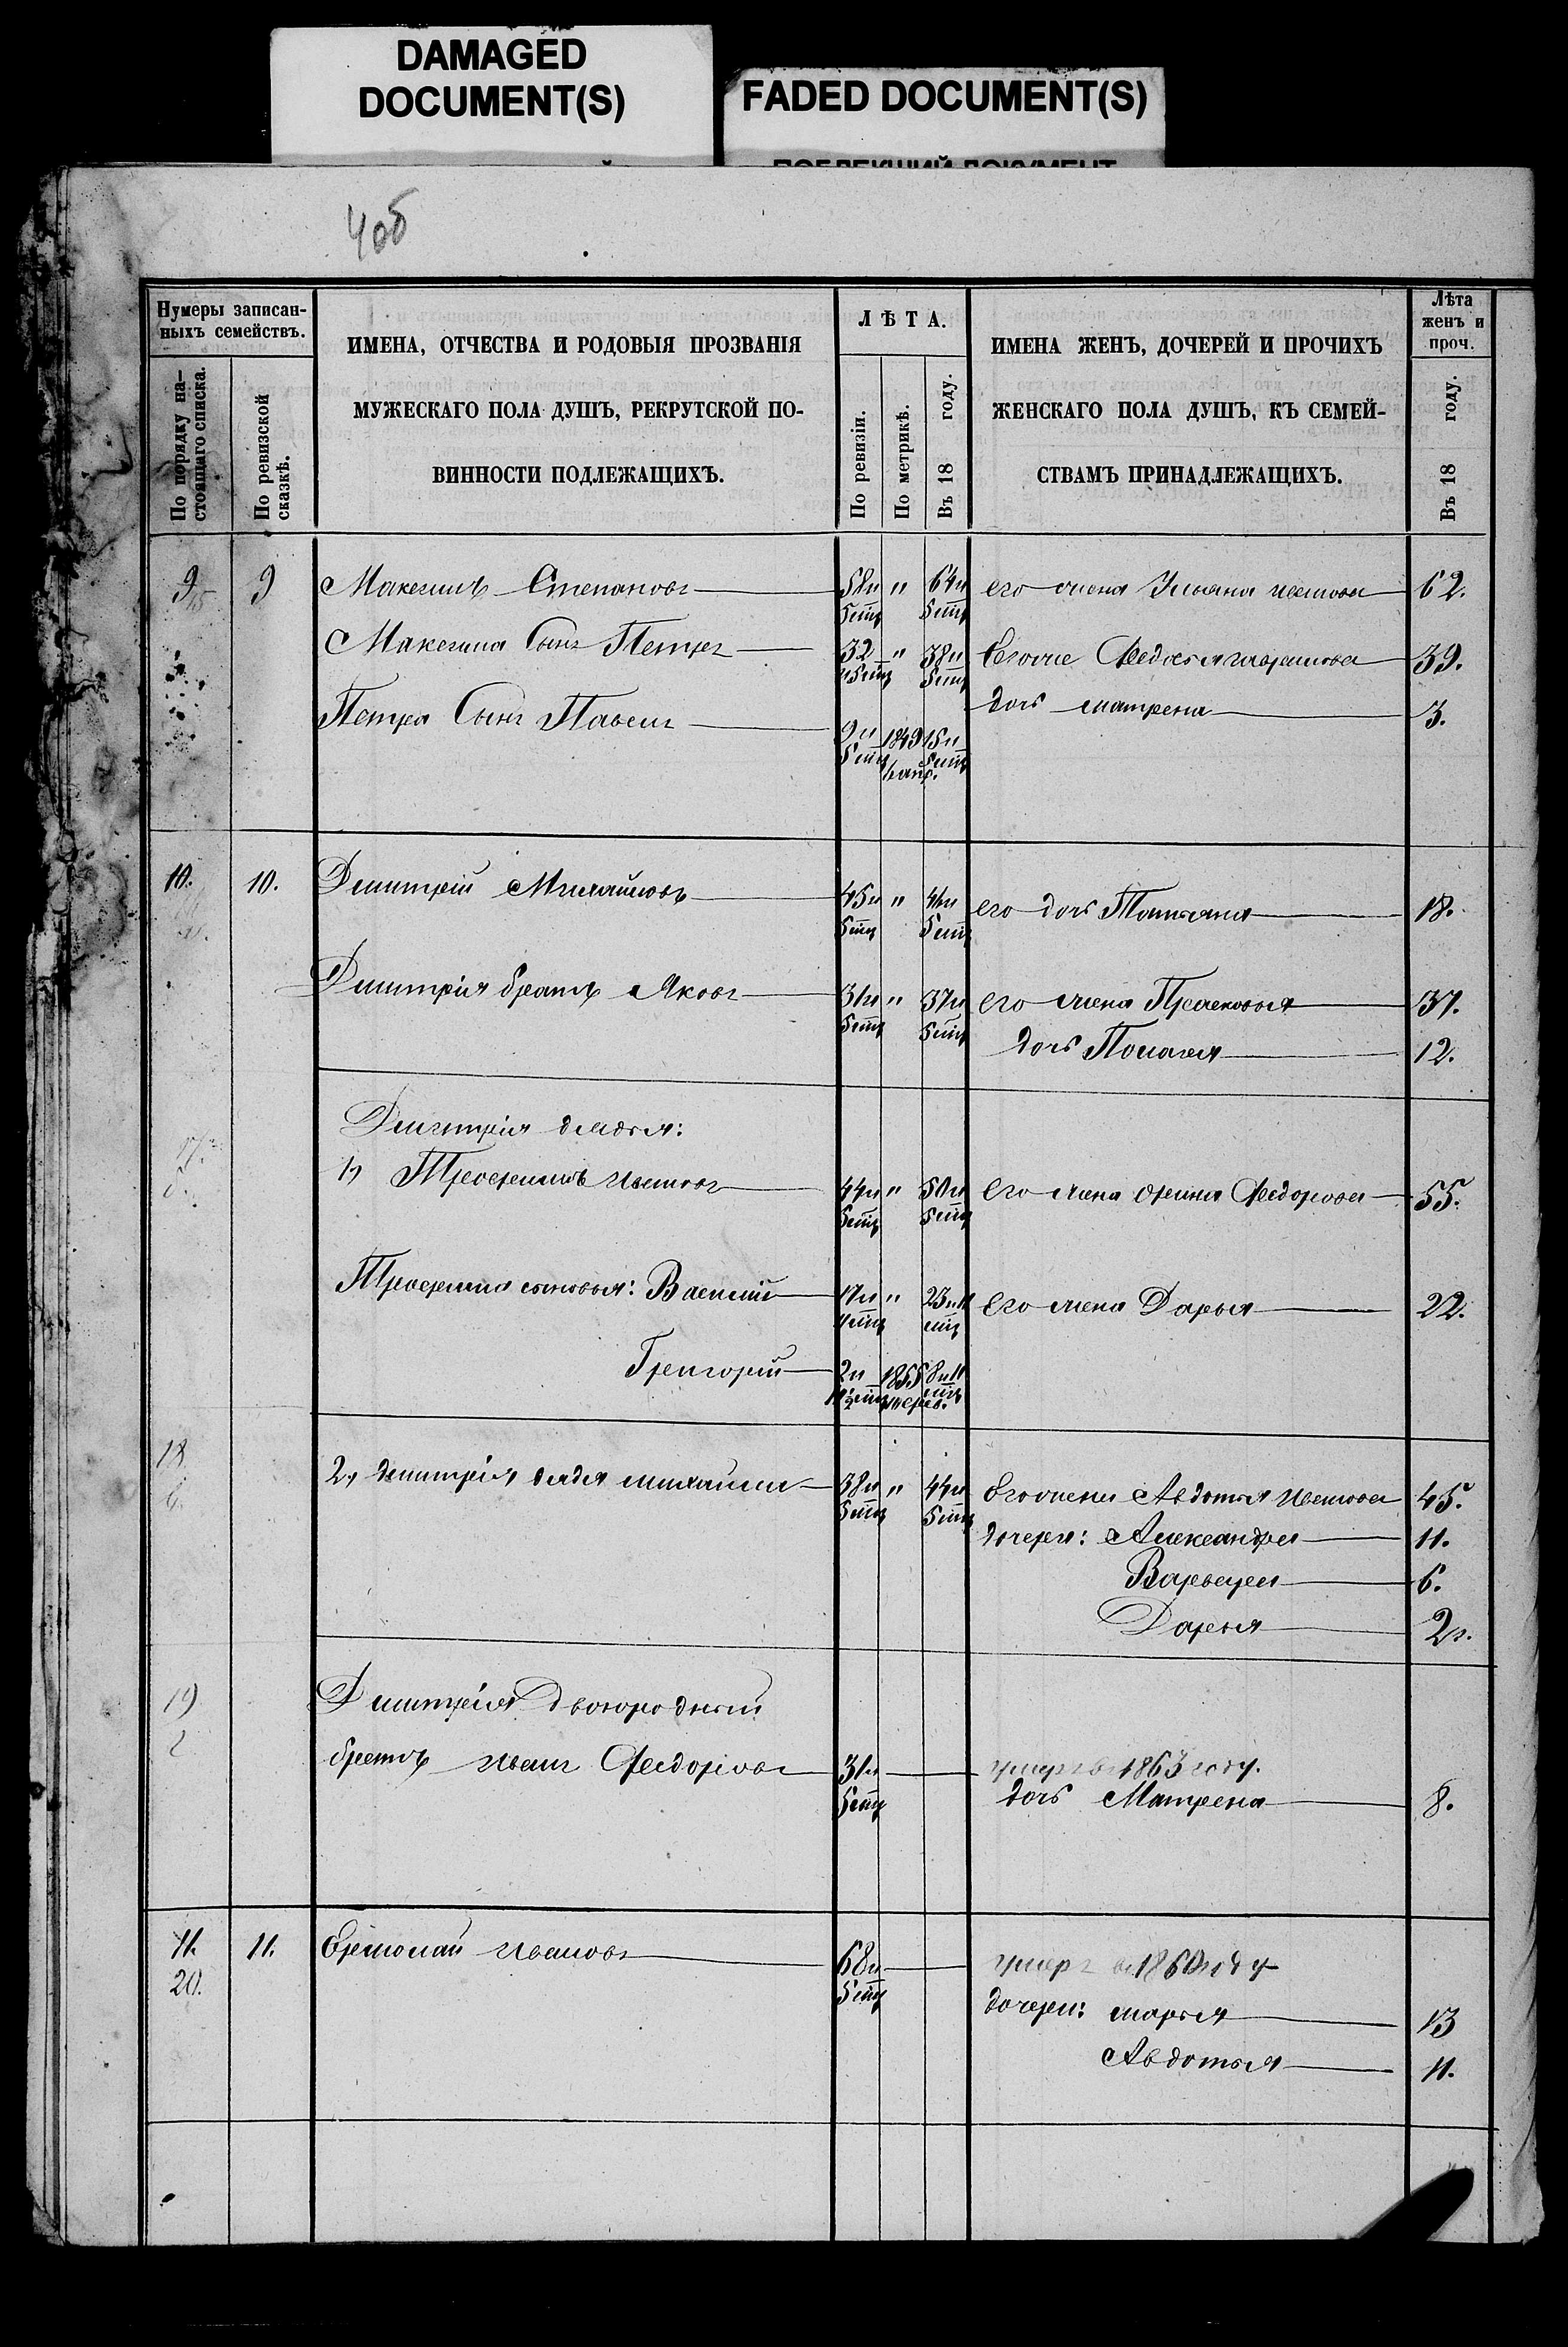 DAMAGED
DOCUMENT(S)
FADED DOCUMENT(S)
ПОБЛЕКШИЙ ДОКУМЕНТ
4об
Нумеры записан-
ныхъ семействъ.
По порядку на-
стоящаго списка.
По ревизской
сказкѣ.
ИМЕНА, ОТЧЕСТВА И РОДОВЫЯ ПРОЗВАНІЯ
МУЖЕСКАГО ПОЛА ДУШЪ, РЕКРУТСКОЙ ПО-
ВИННОСТИ ПОДЛЕЖАЩИХЪ.
ЛѢТА.
По ревизіи.
По метрикѣ.
Въ 18 году.
ИМЕНА ЖЕНЪ, ДОЧЕРЕЙ И ПРОЧИХЪ
ЖЕНСКАГО ПОЛА ДУШЪ, КЪ СЕМЕЙ-
СТВАМЪ ПРИНАДЛЕЖАЩИХЪ.
Лѣта
женъ и
проч.
Въ 18 году.
9 9 Максимъ Степановъ 58 и " 64 и его жена Ульяна 62.
5 мц 5 мц
Максима Сынъ Петръ 32 " 38 и Его жена Федосья 39.
и 5 мц 5 мц
дочь матрена 3.
Петра Сынъ Павелъ 9 и 1849 15 и
5 мц 5 мц
10. 10. Дмитрій Михайловъ 45 и " его дочь Татьяна 18.
5 мц 5 мц
Дмитрія братъ Яковъ 31 и " 37 и его жена Прасковья 37.
5 мц 5 мц
дочь Пелагея 12.
Дмитрія дядья:
1, Трофимъ Ивановъ 44 и " 50 и Его жена Федорова 55.
5 мц 5 мц
Трофима сыновья: Василій 17 и " 23 и 11 Его жена Дарья 22.
мц мц
Григорій 2 и 1855 8 и 11
мц
18
2, дмитрія дядя михайла 38 и " 44 и Его жена Авдотья Иванова 45.
5 мц 5 мц
дочери: Александра 11.
Варвара 6.
Дарья 2
19 Дмитрія Двоюродный
братъ Иванъ Федоровъ 31 и умеръ въ 1863 году.
5 мц дочь Матрена 8.
11. 11. Ермолай Ивановъ 68 и умеръ въ 1860 году
20. 5 мц дочери: марья 13
Авдотья 11.